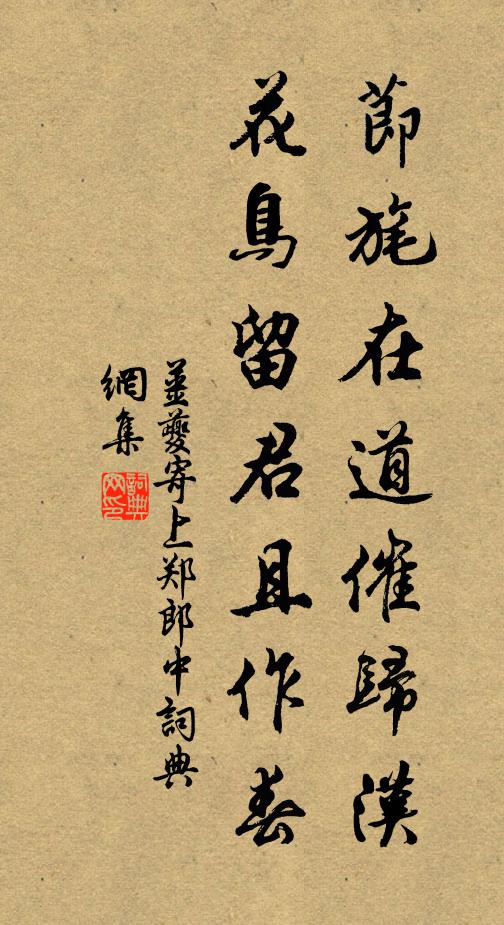 節旄在道催歸漢
花鳥留君且作春
姜夔寄上郑郎中詞典
網集
詞典網印